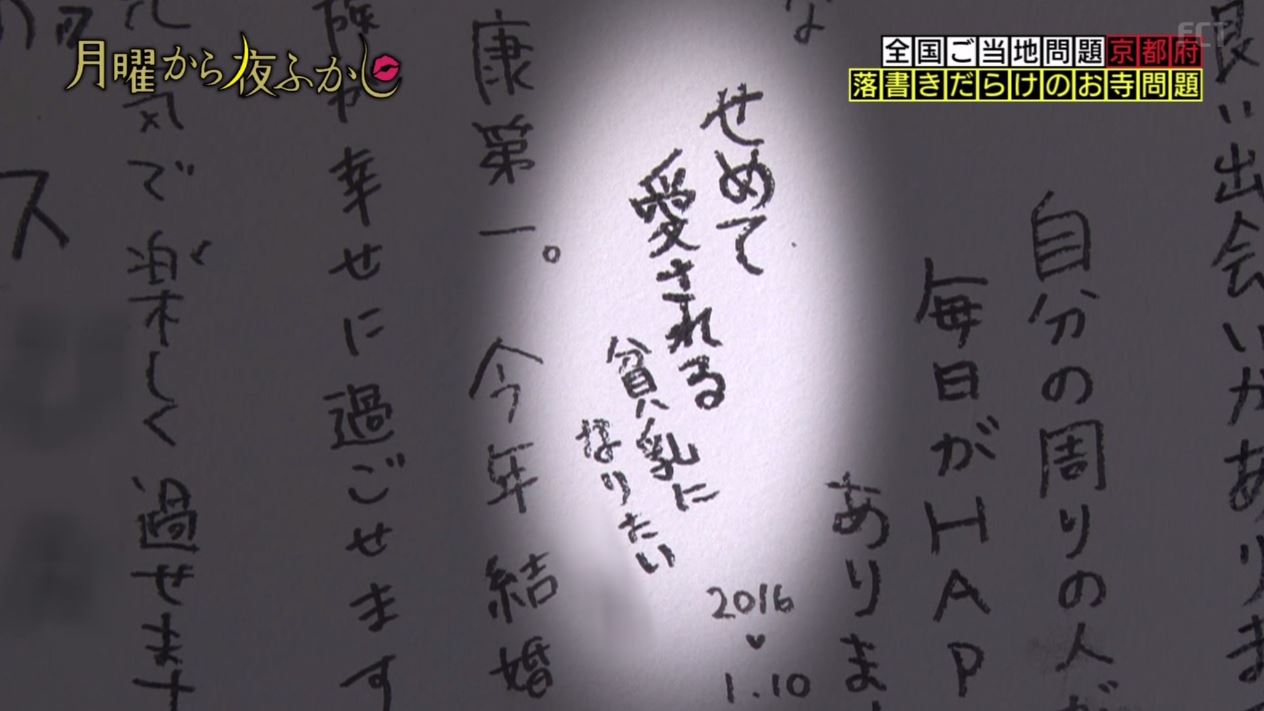 FCT
月曜から夜ふかし
全国ご当地問題京都府
落書きだらけのお寺問題
良い出会いがありま
自分の周りの人が
毎日がHAP
ありま
な
せめて
愛される
貧乳に
なりたい
2016
♥
1.10
康第一。今年結婚
族が幸せに過ごせます
元気で楽しく過せます
ス